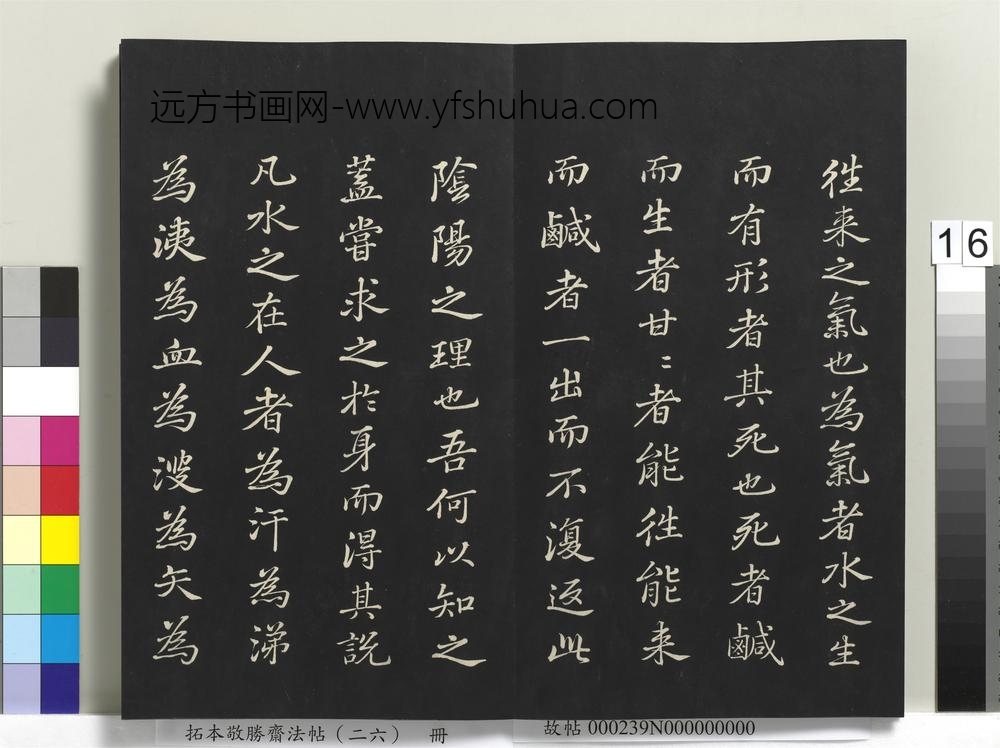 远方书画网-www.yfshuhua.com
往来之氣也為氣者水之生
而有形者其死也死者鹹
而生者甘〻者能往能来
而鹹者一出而不復返此
陰陽之理也吾何以知之
蓋嘗求之於身而得其說
凡水之在人者為汗為涕
為洟為血為溲為矢為
16
拓本敬勝齋法帖（二六） 冊
故帖 000239N000000000